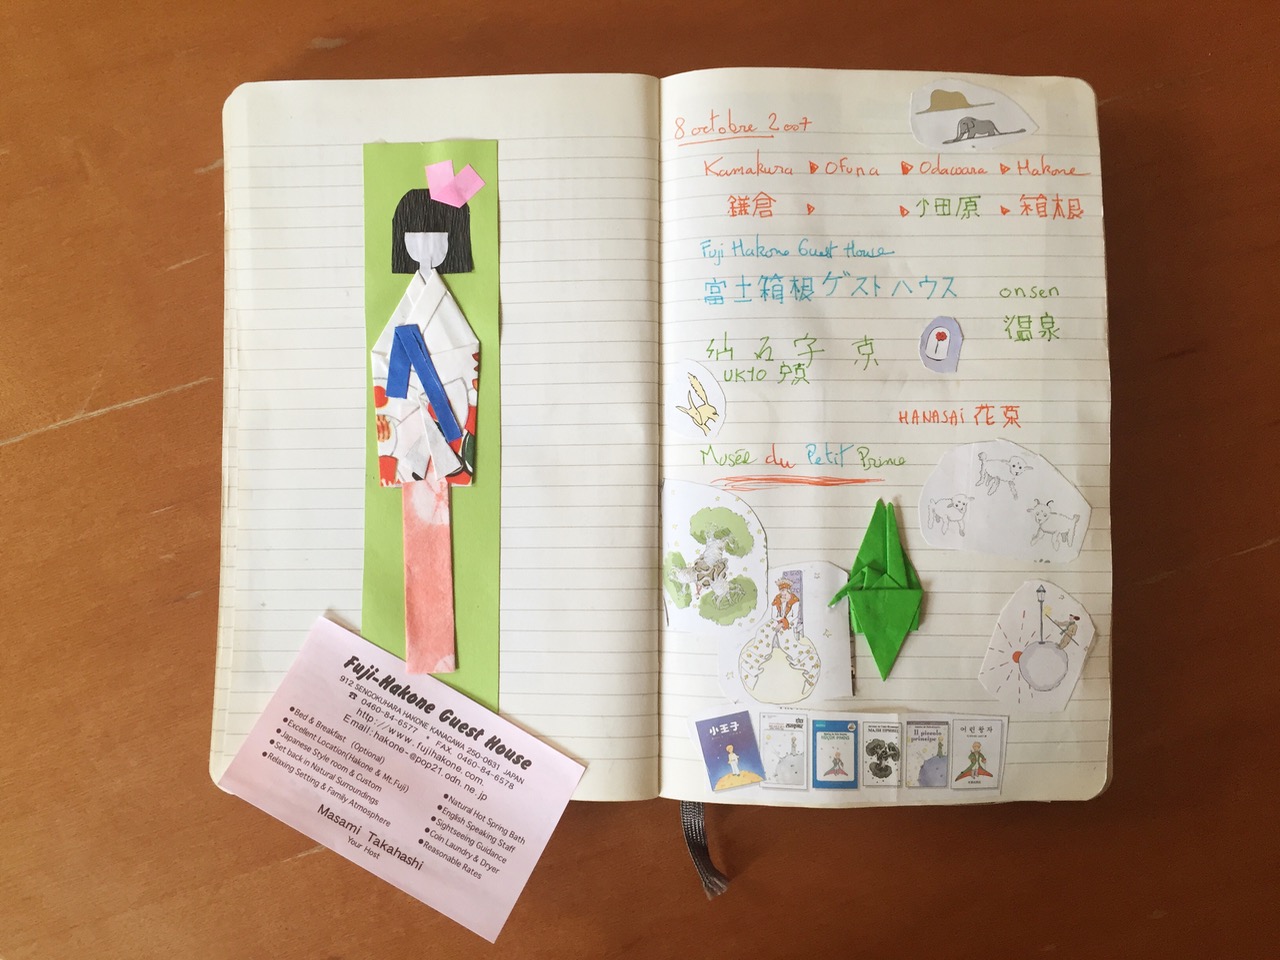 Fuji-Hakone Guest House
912 SENGOKUHARA HAKONE KANAGAWA 250-0631 JAPAN
☎ 0460-84-6577 FAX. 0460-84-6578
http://www.fujihakone.com.
Email:hakone-@pop21.odn.ne.jp
●Bed & Breakfast (Optional)
●Excellent Location(Hakone & Mt.Fuji)
●Japanese Style room & Custom
●Set back in Natural Surroundings
●Relaxing Setting & Family Atmosphere
●Natural Hot Spring Bath
●English Speaking Staff
●Sightseeing Guidance
●Coin Laundry & Dryer
●Reasonable Rates
Masami Takahashi
Your Host
8 octobre 2007
Kamakura ▷ OFuna ▷ Odawara ▷ Hakone
鎌倉 ▷ ▷ 小田原 ▷ 箱根
Fuji Hakone Guest House
富士箱根ゲストハウス
onsen
温泉
UKYO
HANASAi 花菜
Musée du Petit Prince
小王子
МАЛИ ПРИНЦ
Il piccolo principe
어린 왕자